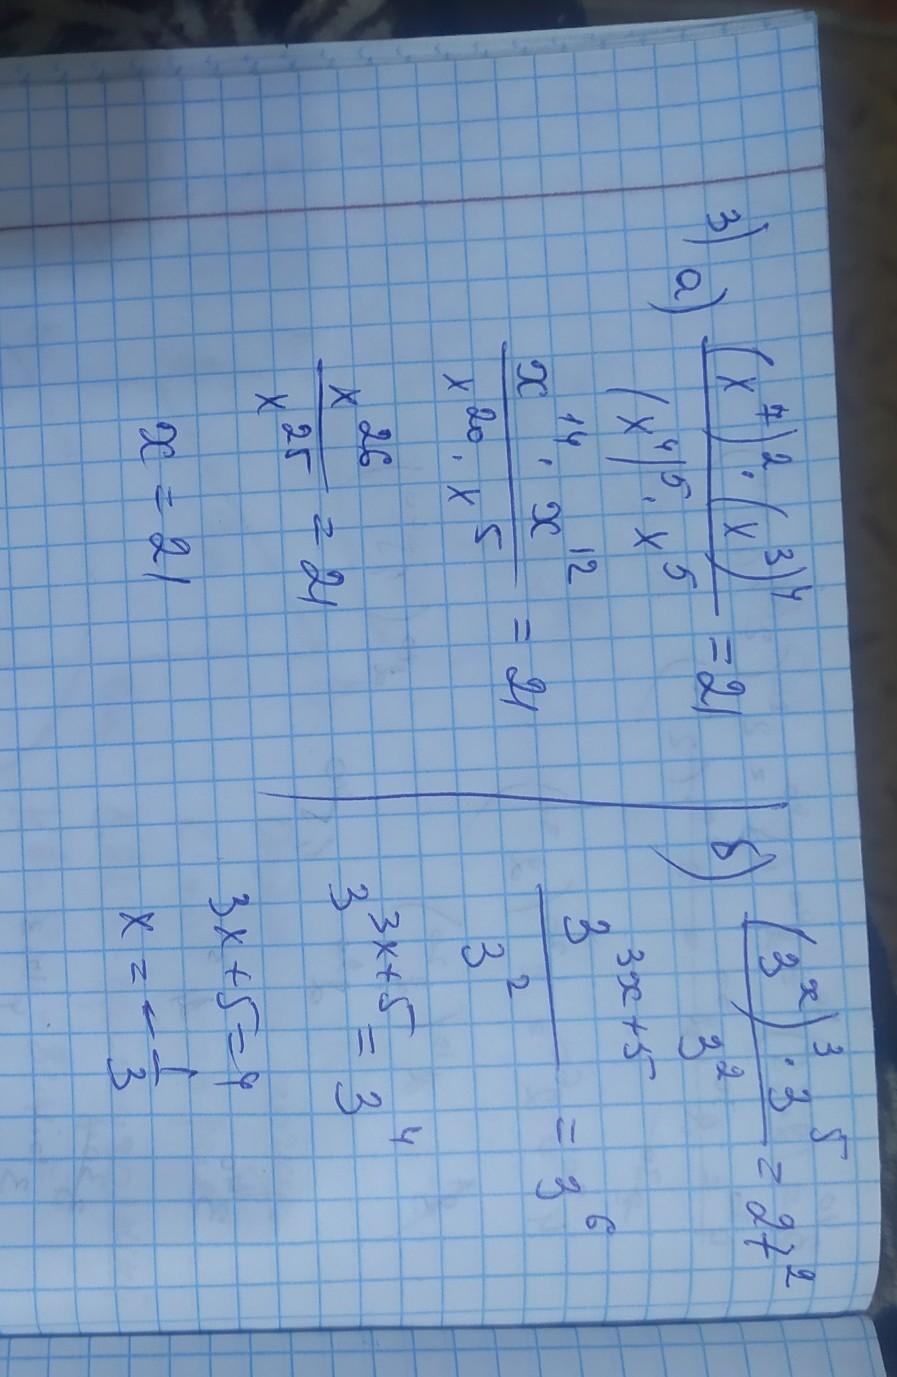 3) a) (x^7)^2 · (x^3)^4 / (x^4)^5 · x^5 = 21
x^14 · x^12 / x^20 · x^5 = 21
x^26 / x^25 = 21
x = 21
б) (3^x)^3 · 3^5 / 3^2 = 27^2
3^(3x+5) / 3^2 = 3^6
3^(3x+5) = 3^4
3x+5=4
x = - 1/3